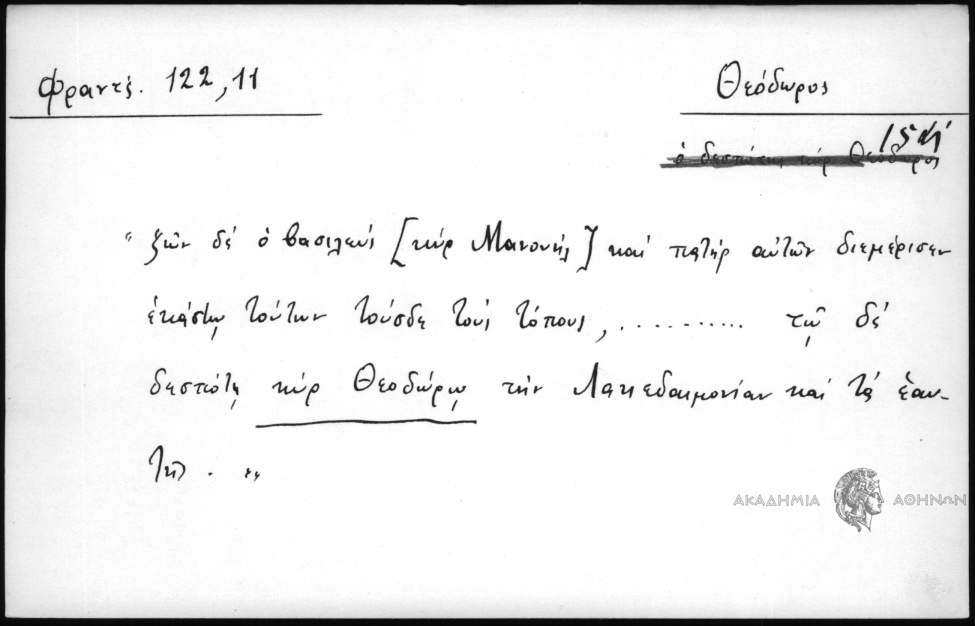 Φραντζ. 122,11
Θεόδωρος
ὁ δεσπότης κὺρ Θεόδωρος
"ζῶν δὲ ὁ βασιλεὺς [κὺρ Μανουὴλ] καὶ πατὴρ αὐτῶν διεμέρισεν
ἑκάστῳ τούτων τούσδε τοὺς τόπους, .......... τῷ δὲ
δεσπότῃ κὺρ Θεοδώρῳ τὴν Λακεδαιμονίαν καὶ τὰ ἑαυ-
τῆς . "
ΑΚΑΔΗΜΙΑ ΑΘΗΝΩΝ